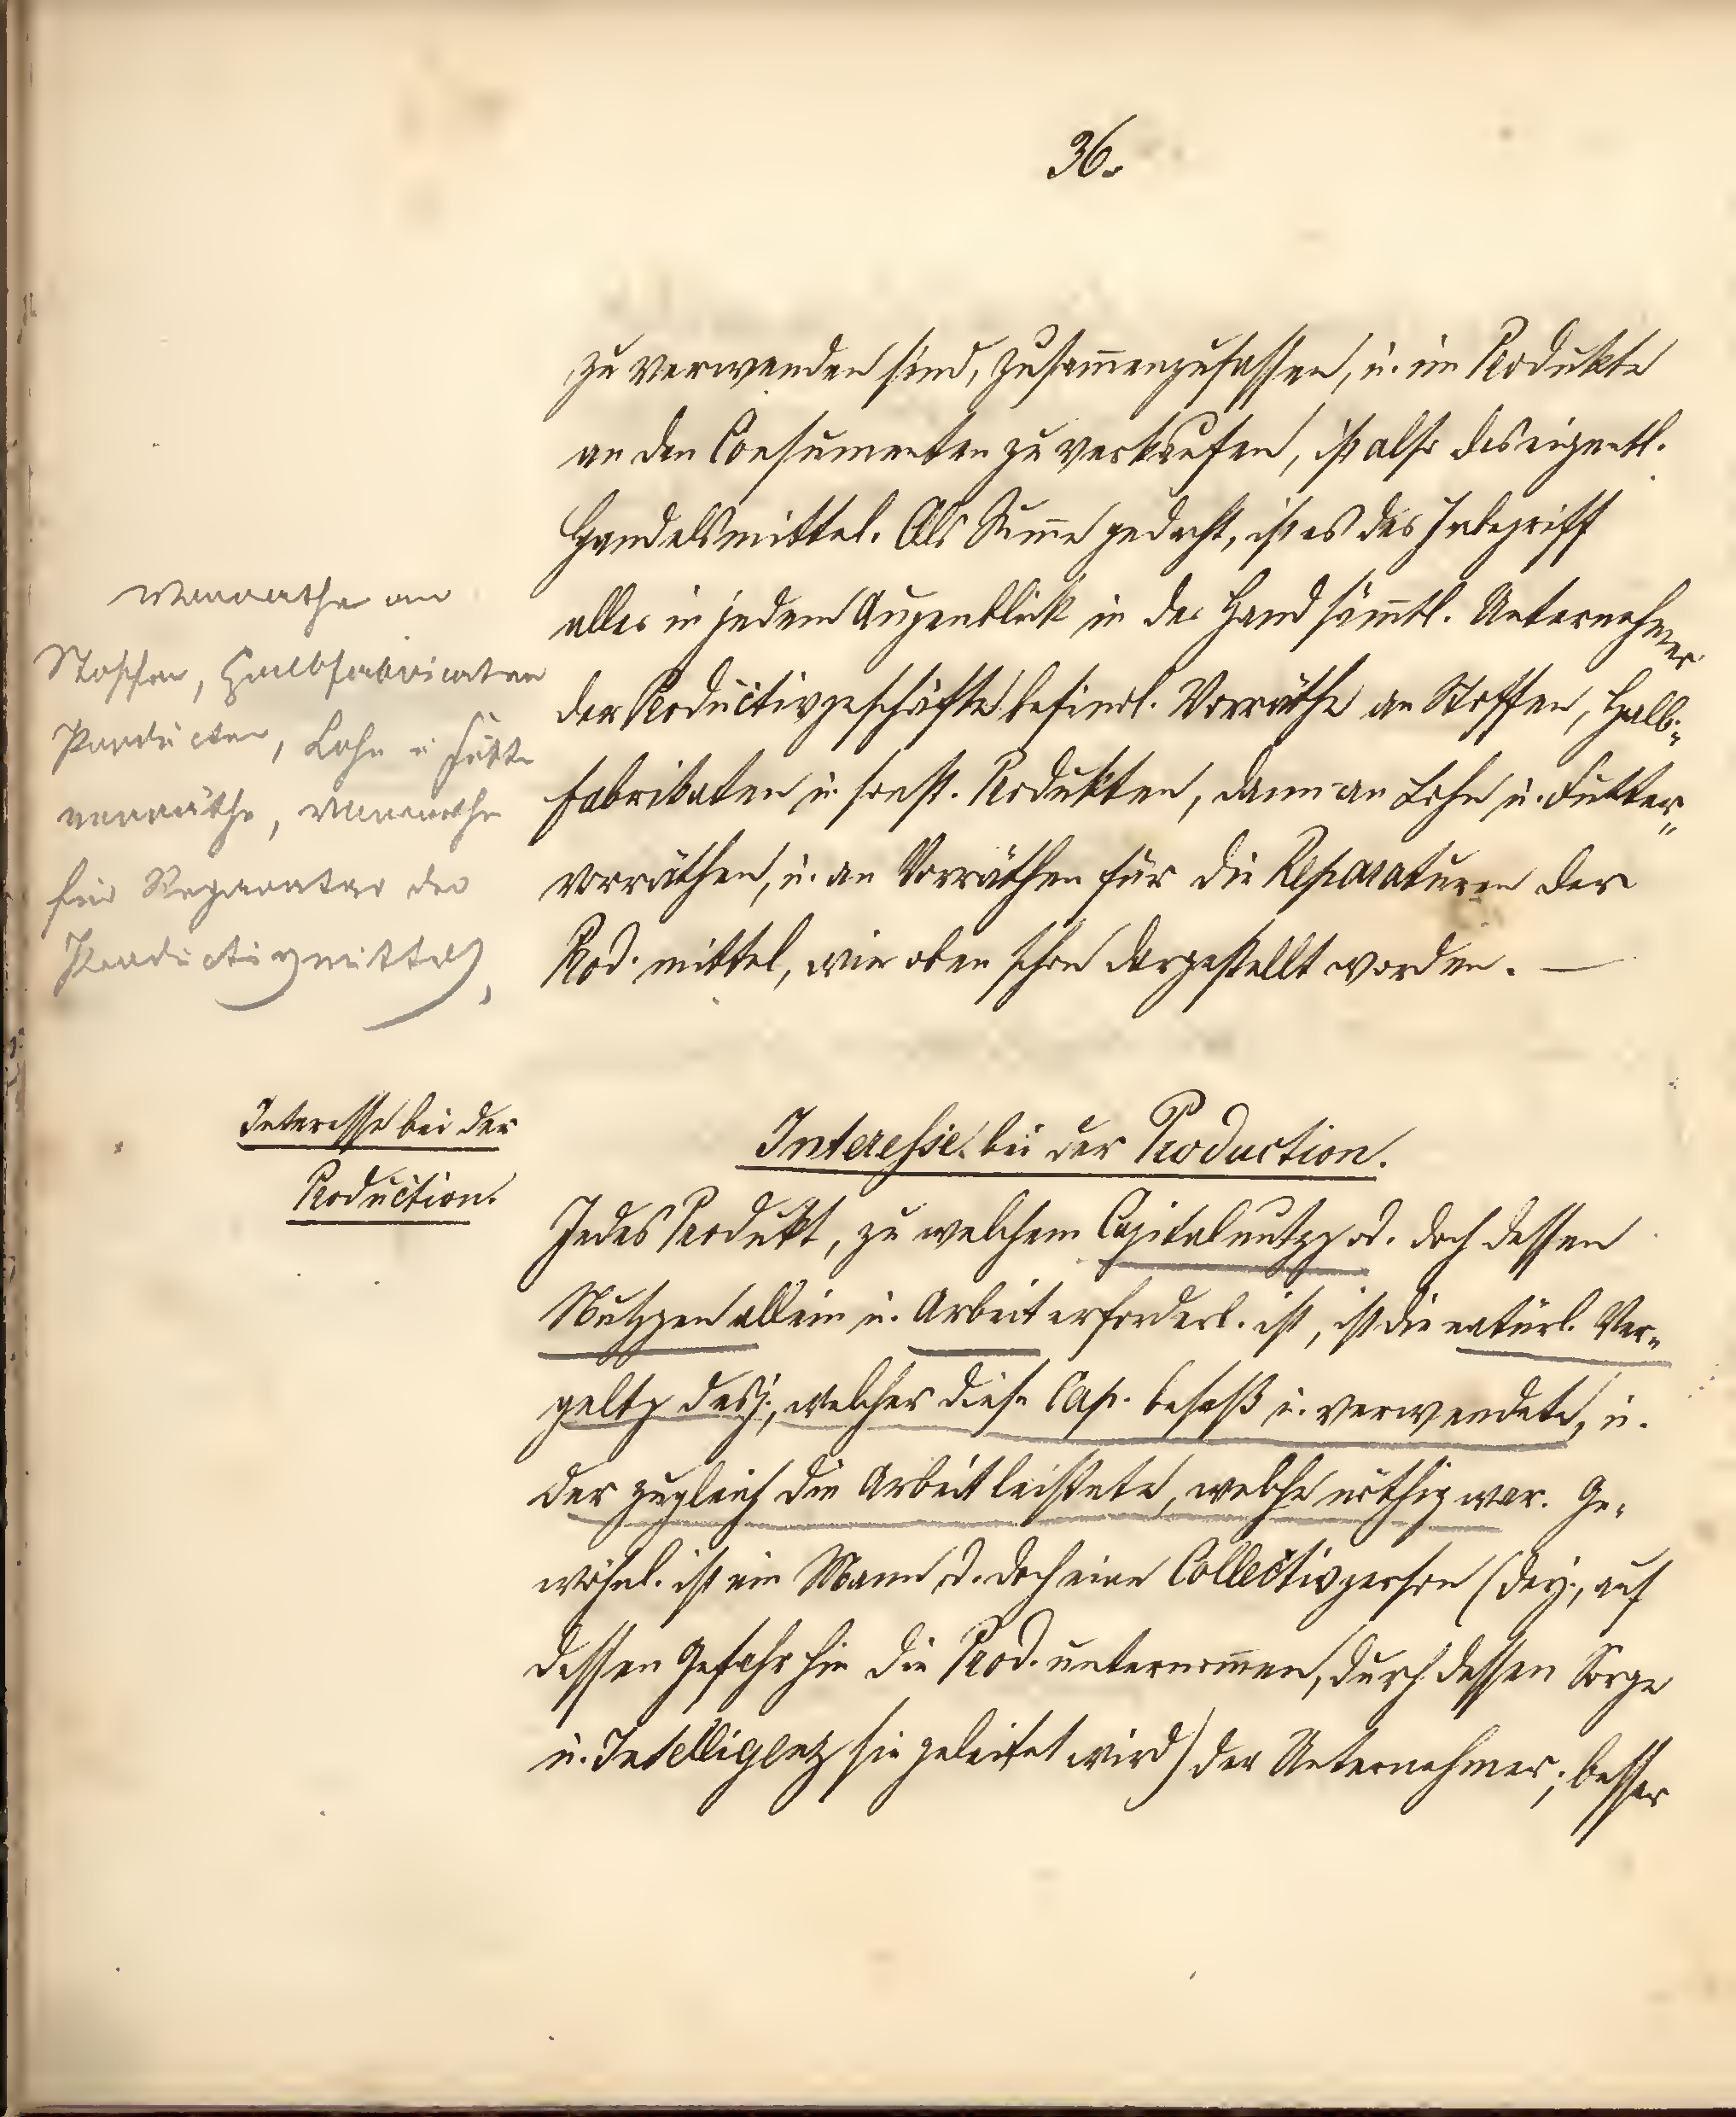 36.
zu verwenden sind, zusam̅enzufassen, u. im Produkte
an den Consumenten zu verkaufen, ist also das eigentl.
Handelsmittel. Als Sum̅e gedacht, ist es der Inbegriff
aller in jedem Augenblick in der Hand säm̅tl. Unternehmer
der Productivgeschäfte befindl. Vorräthe an Stoffen, Halb-
fabrikaten u. sonst. Produkten, dann an Lohn u. Futter-
vorräthen, u. an Vorräthen für die Reparaturen der
Prod. mittel, wie oben schon dargestellt worden. —
Vorräthe an
Stoffen, Halbfabricaten
Producten, Lohn u Futter
vorräthe, Vorräthe
für Reparatur der
Productivmittel),
Interesse bei der
Production.
Interesse bei der Production.
Jedes Produkt, zu welchem Capitalnutzg od. doch dessen
Nutzgen allein u. Arbeit erforderl. ist, ist die natürl. Ver-
geltg desj., welcher diese Cap. besaß u. verwendete, u.
der zugleich die Arbeit leistete, welche nöthig war. Ge-
wöhnl. ist ein Mann od. doch eine Collectivperson (derj., auf
dessen Gefahr hin die Prod. unternom̅en, durch dessen Sorge
u. Intelligenz sie geleitet wird) der Unternehmer; besser